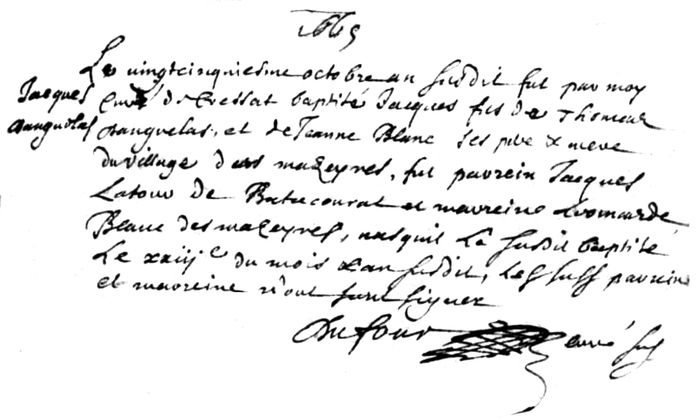 1665
Le vingtcinquiesme octobre an susdit fut par moy
Jacques
danguelas
curé de Cressat baptisé Jacques fils de Thomas
danguelas, et de Jeanne Blanc ses pere & mere
du village des mazeyres, fut parrein Jacques
Latour de et marreine Leonarde
Blanc des mazeyres, nasquit le susdit baptisé
Le xxiije du mois & an susdit, Les suss parrein
et marreine n'ont sceu signer
Dufour curé sus